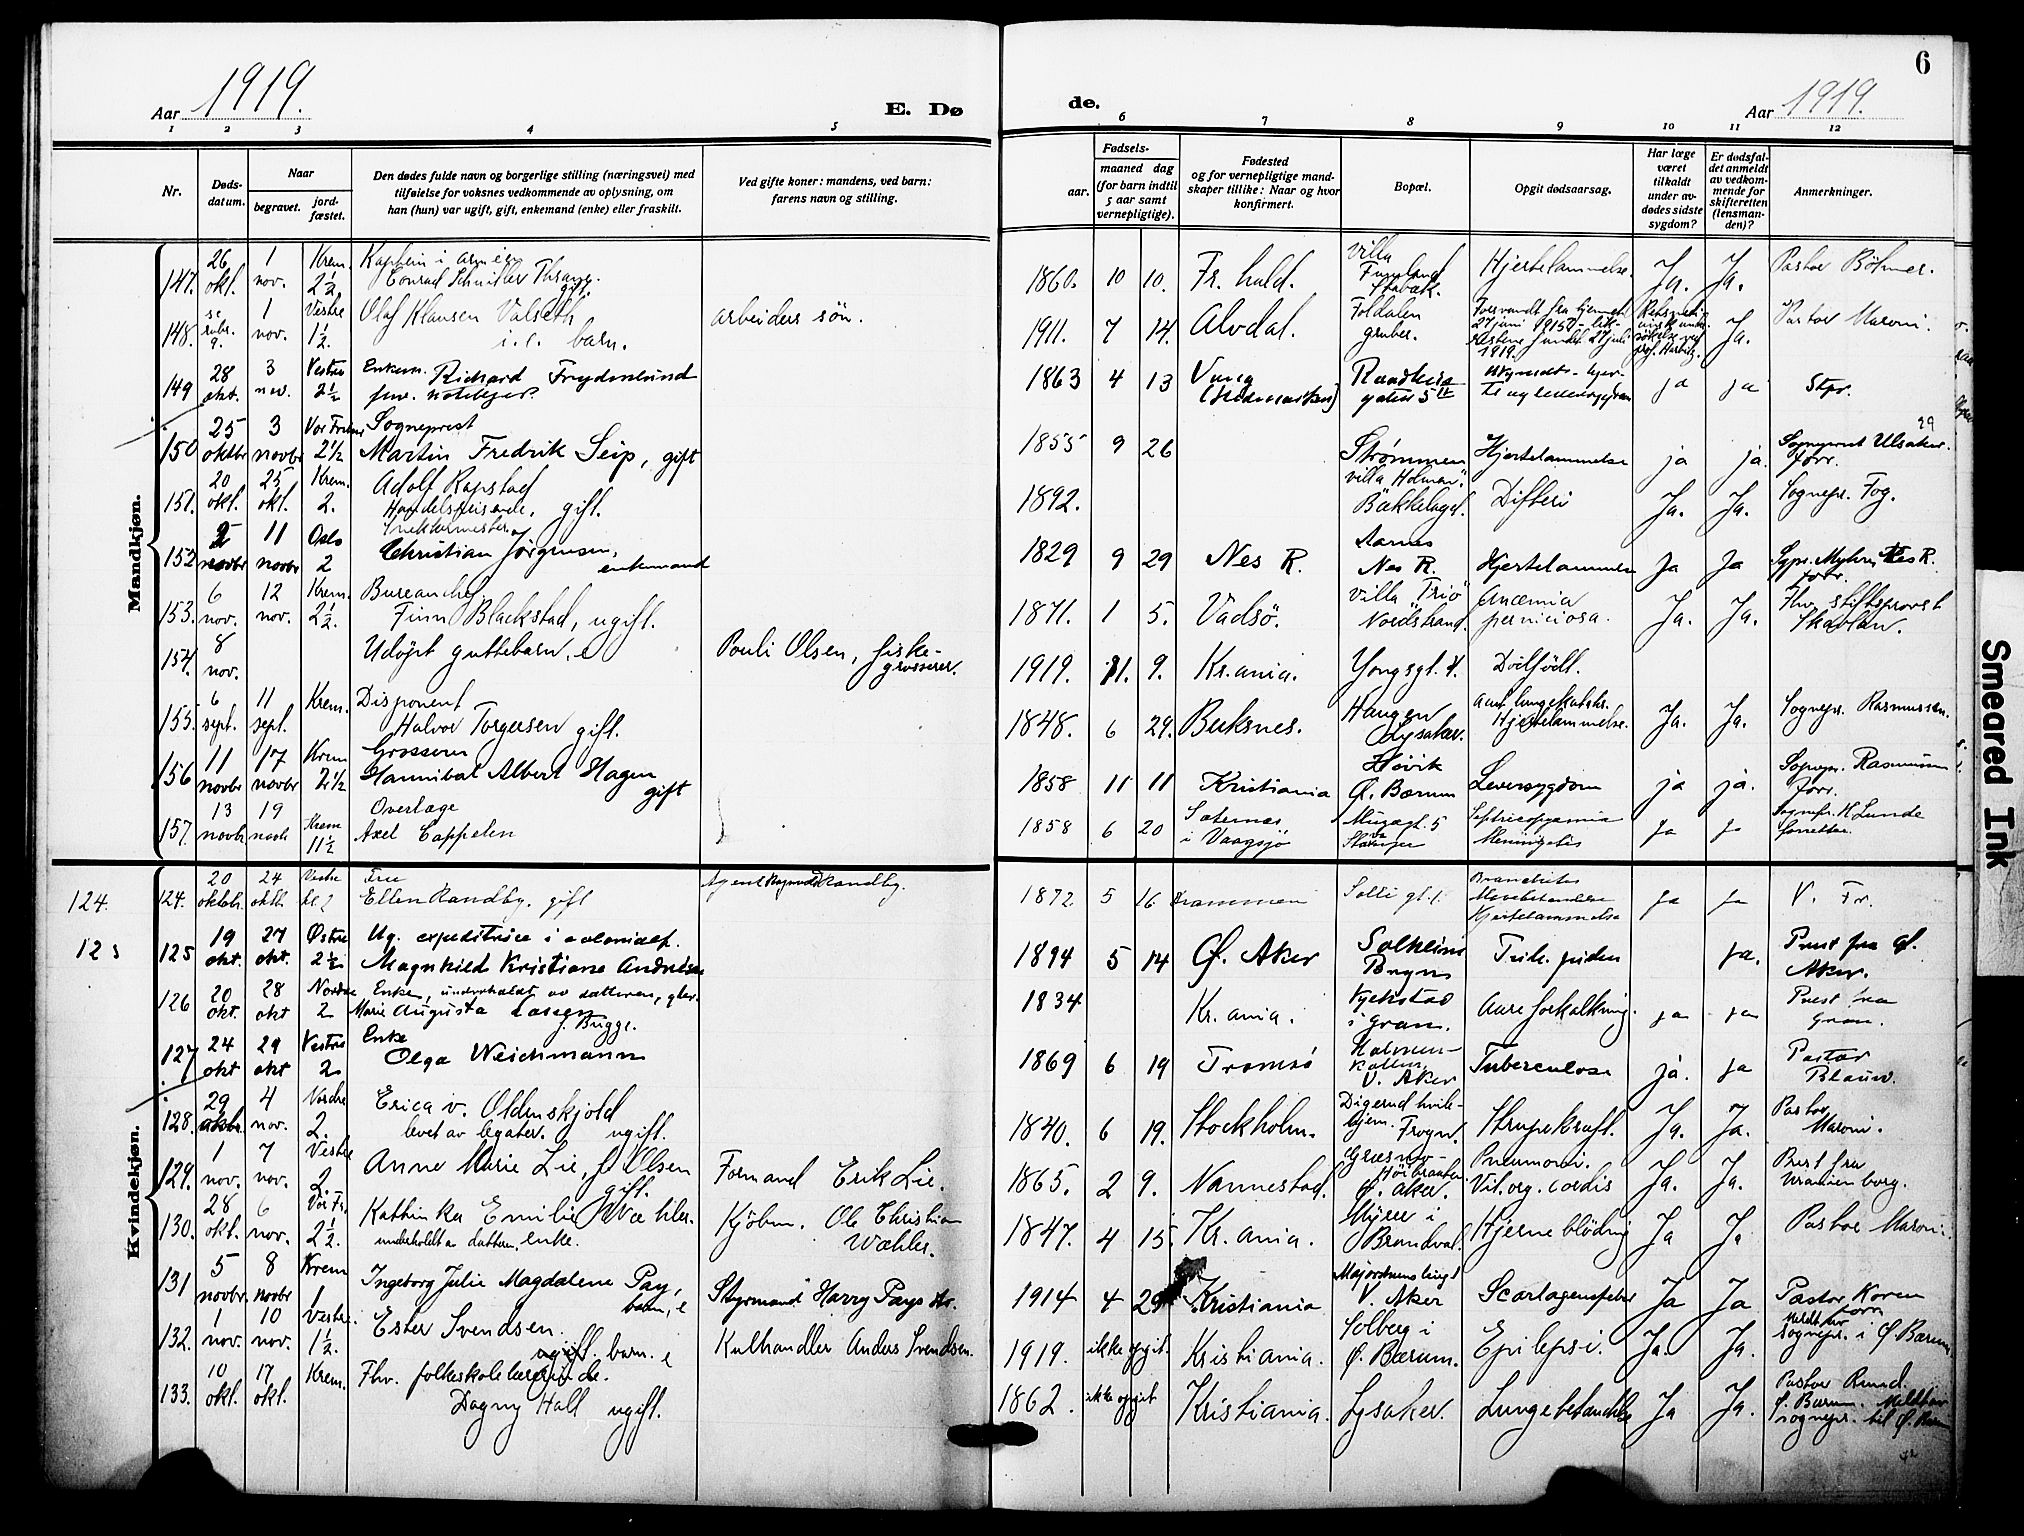 6
Aar 1919.
E. Dø
de.
Aar 1919.
1 2 3 4 5 6 7 8 9 10 11 12
Nr.
Døds-
datum.
Naar
begravet.
jord-
fæstet.
Den dødes fulde navn og borgerlige stilling (næringsvei) med
tilføielse for voksnes vedkommende av oplysning, om
han (hun) var ugift, gift, enkemand (enke) eller fraskilt.
Ved gifte koner: mandens, ved barn:
farens navn og stilling.
Fødsels-
aar.
maaned dag
(for barn indtil
5 aar samt
vernepligtige).
Fødested
og for vernepligtige mand-
skaper tillike: Naar og hvor
konfirmert.
Bopæl.
Opgit dødsaarsag.
Har læge
været
tilkaldt
under av-
dødes sidste
sygdom?
Er dødsfal-
det anmeldt
av vedkom-
mende for
skifteretten
(lensman-
den)?
Anmerkninger.
Mandkjøn.
147. 26 okt. 1 nov. Krem. 2½ Kaptein i armeen
Conrad Schnitler Thrane. gift. 1860. 10 10. Fr.hald. Villa Stabæk. Hjertelammelse. Ja. Ja. Pastor Böhmer.
148. se rubr. 9. 1 nov. Vestre 1½. Olaf Klausen Valseth
barn. arbeiders søn. 1911. 7 14. Alvdal. Foldalen gruber. Forsvandt fra hjemmet 27 juni 1915 - 27 juli 1919. Ja. Pastor Maroni.
149 28 okt. 3 nov. Vestre 2½ Enkem. Richard Frydenlund
1863 4 13 Vang (Hedemarken) gaten 5 ja ja Stpr.
150 25 oktbr 3 novbr Vor Frelser 2½ Sogneprest
Martin Fredrik Seip, gift 1855 9 26 Strømmen Hjertelammelse ja ja. Sogneprest Ulsaker. forr. 29
151. 20 okt. 25 okt. Krem. 2. Adolf Rapstad
Handelsreisende, gift. 1892. Villa "Holmen", Bækkelaget. Difteri Ja. Ja. Sognepr. Fog.
152 2 novbr 11 novbr Oslo 2 Snekkermester
Christian Jørgensen, enkemand 1829 9 29 Nes R. Aarnes Nes R. Hjertelammelse Ja Ja Sypr. Myhren Nes R. forr.
153. 6 nov. 12 nov. Krem. 2½. Bureauchef
Finn Blackstad, ugift. 1871. 1 5. Vadsø. Villa "Frio" Nordstrand. Anæmia perniciosa. Ja. Ja. Fhv. stiftsprovst Skavlan.
154. 8 nov. Udøpt guttebarn, e Pouli Olsen, fiske-
grosserer. 1919. 11. 9. Kr.ania. Yongsgt. 4. Dødfødt.
155. 6 sept. 11 sept. Krem. Disponent
Halvor Torgersen gift. 1848. 6 29. Buksnes. Haugen Lysaker. Hjertelammelse. Ja. Ja. Sognepr. Rasmussen.
156 11 novbr 17 novbr Krem 2½ Grosserer
Hannibal Albert Hagen gift 1858 11 11 Kristiania Høvik Ø. Bærum Leversygdom ja ja. Sognepr. Rasmussen forr.
157. 13 novbr 19 novb Krem 11½ Overlæge
Axel Cappelen 1858 6 20 i Vaagsjø Stavanger Meningitis ja ja Sognepr. K. Lunde forrettet.
Kvindekjøn.
124. 124. 20 oktobr. 24 oktb. Vestre kl 2 Frue
Ellen Randby, gift Agent Randby. 1872. 5 16 Drammen Solli gt. 1. Hjertelammelse ja ja V. Fr.
125 125 19 okt. 27 okt. Østre 2½ Ug. expeditrice i colonialf.
Magnhild Kristiane Andresen 1894 5 14 Ø. Aker Solheim Bryn Ja. Prest fra Ø. Aker.
126 20 okt. 28 okt Nordre 2 Enke, underholdt av datteren,
Marie Augusta Lassen f. Bugge. 1834 Kr.ania. i Gran. Aareforkalkning. ja ja Prest fra Gran.
127 24 okt 29 okt Vestre 2 Enke
Olga Weichmann 1869 6 19 Tromsø Holmen- kollen, V. Aker Tuberculose ja. ja Pastor Blauw.
128. 29 oktbr. 4 nov. Nordre 2. Erica v. Oldenskjold
levet av legater. ugift. 1840. 6 19. Stockholm. Digerud hvile- hjem. Frogn. Strupekræft. Ja. Ja. Pastor Maroni.
129. 1 nov. 7 nov. Vestre 2 Anne Marie Lie, f. Olsen
gift. Formand Erik Lie. 1865. 2 9. Nannestad. Ø. Aker. Pneumoni. Vit. org. cordis Ja. Ja. Prest fra Uranienborg.
130. 28 okt. 6 nov. Vor Fr. 2½. Kathinka Emilie Wæhler.
underholdt a datteren, enke. Kjøbm. Ole Christian
Wæhler. 1847. 4 15. Kr.ania. Myrer i Brandval. Hjerneblødning Ja Ja Pastor Maroni.
131 5 novbr. 8 novbr Krem 1 Ingeborg Julie Magdalene Pay,
barn, e Styrmand Harry Pays dtr. 1914 4 29 Kristiania V. Aker Scarlagensfeber Ja Ja Pastor Koren forr
132. 1 nov. 10 nov. Vestre. 1½. Ester Svendsen.
ugift. barn. e Kulhandler Anders Svendsen. 1919. ikke opgit. Kristiania. Solberg i Ø. Bærum. Epilepsi. Ja. Ja. Meldt av sognepr. i Ø. Bærum.
133. 10 okt. 17 okt. Krem. Fhv. folkeskolelærerinde.
Dagny Hall ugift. 1862. ikke opgit Kristiania. Lysaker. Lungebetændelse Ja Ja. Pastor Ruud. Ø. Bærum. Meldt av sognepr. til Ø. Bærum
Smeared Ink